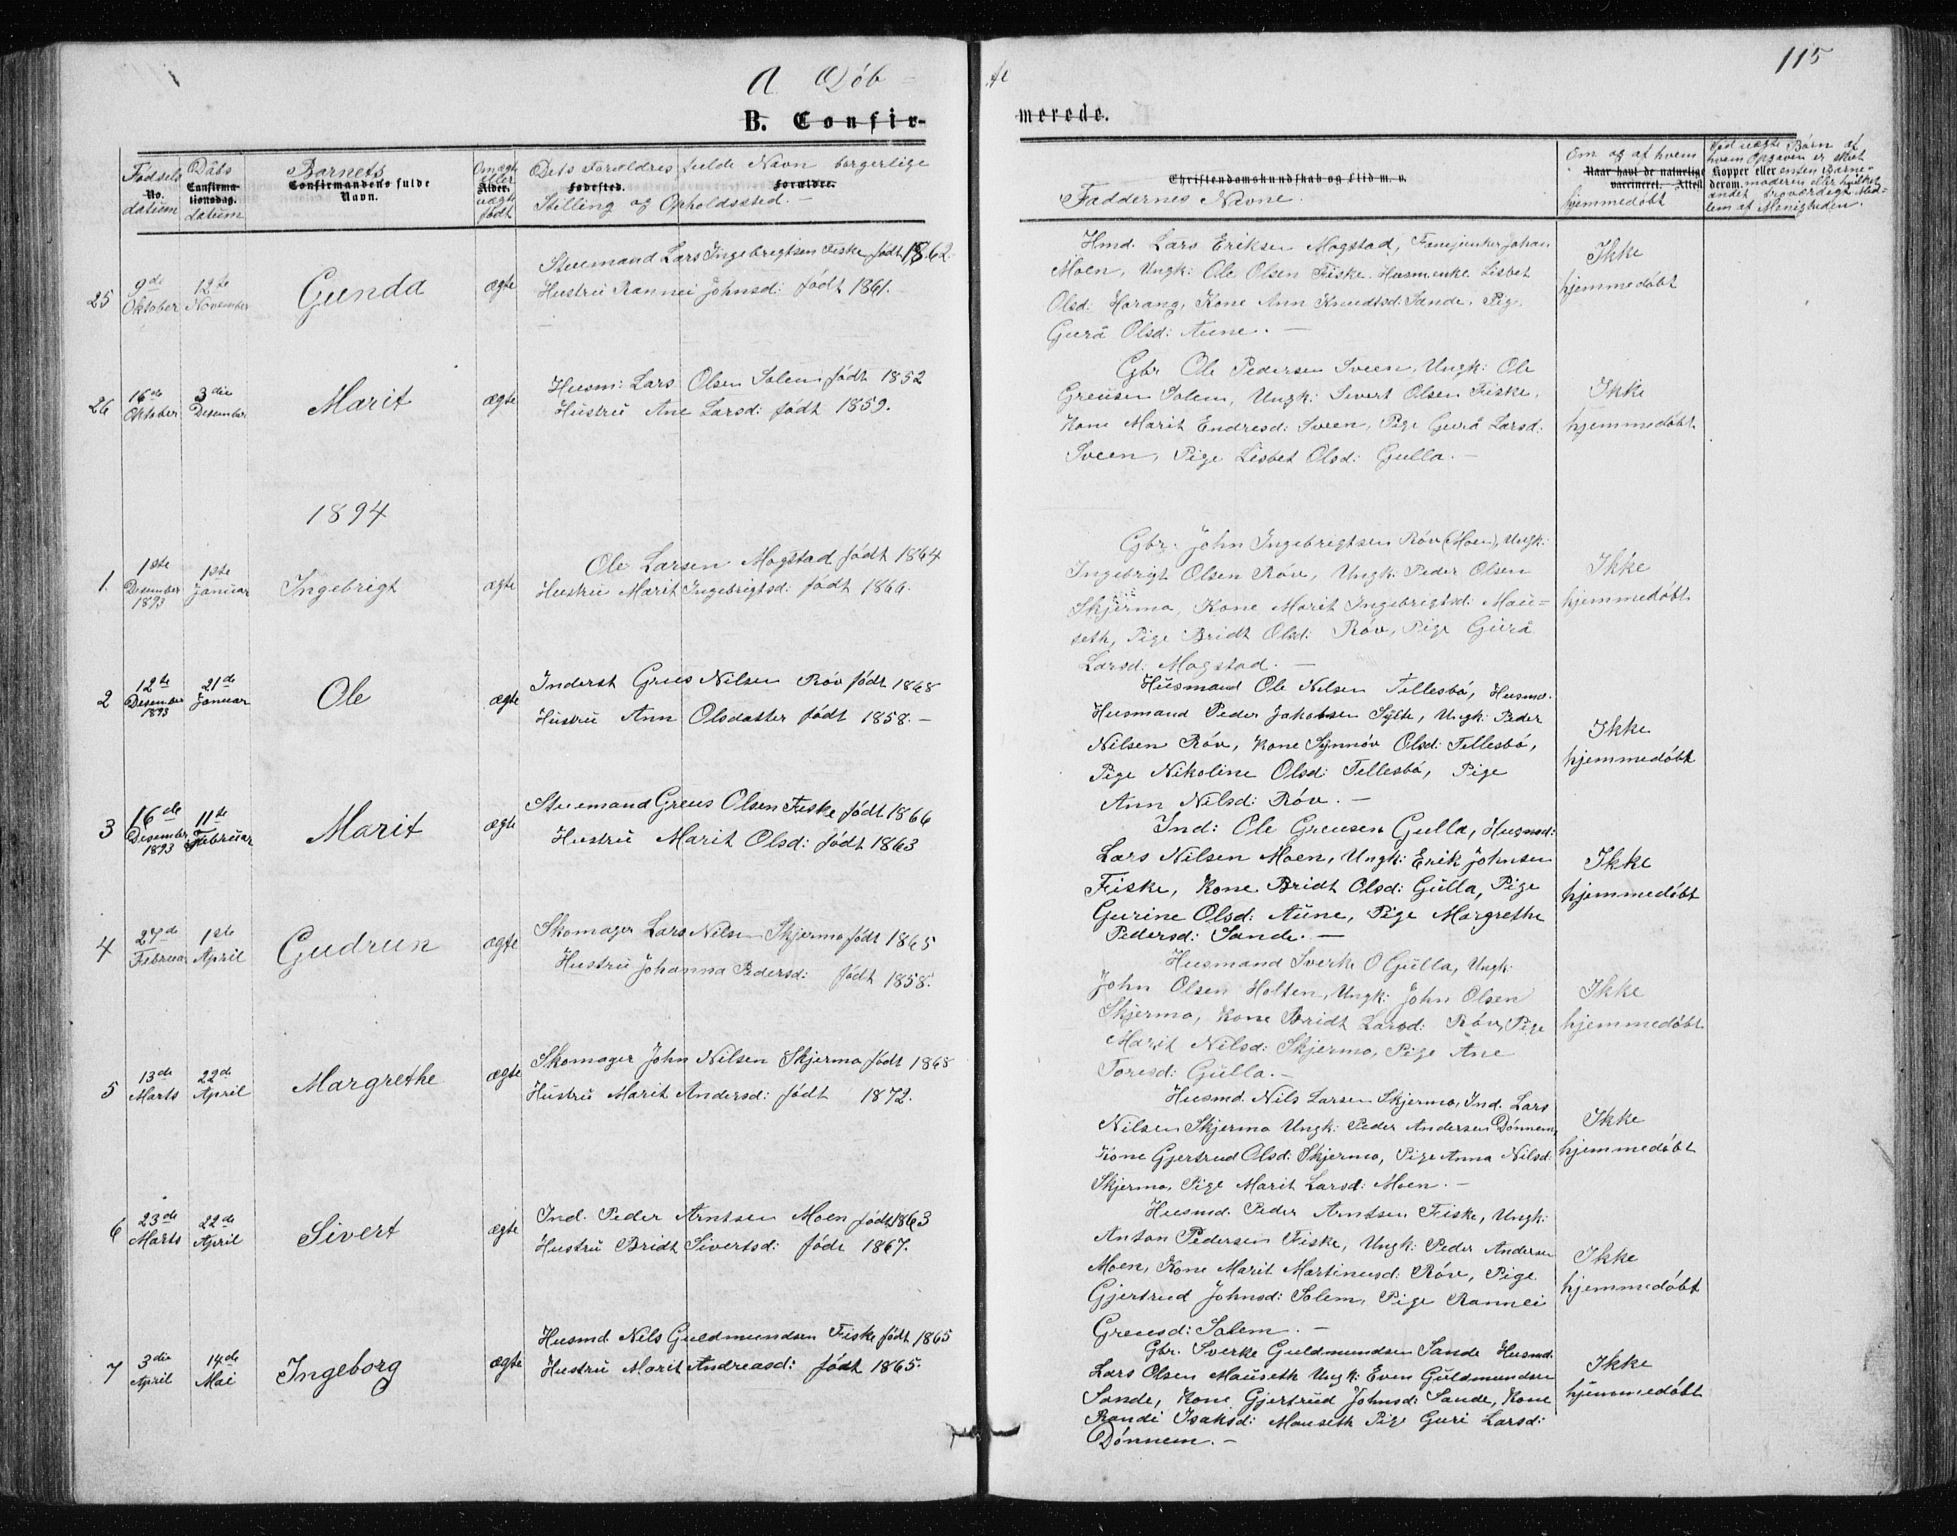 115
A Döb = te
B. Confir- merede.
Fødsels
No.
datum
Dåbs
Confirma-
tionsdag.
datum
Barnets
Confirmandens fulde
Navn.
Om ægte
eller
Alder.
uægte
født
Dets Forældres fulde Navn borgerlige
Fødested. Forældre.
Stilling og Opholdssted. -
Christendomskundskab og Flid m. v.
Faddernes Navne.
Om og af hvem
Naar havt de naturlige
vaccineret. Attest
hjemmedøbt
Ved uægte Børn af
hvem Opgaven er skeet
Kopper eller enten Barne-
derom. moderen eller hvilket
andet troværdigt Med-
lem af Menigheden.
25
9de Oktober
12te November
Gunda
ægte
Stuemand Lars Ingebrigtsen Fiske født 1862.
Hustru Rannei Johnsd: født 1861.
Hmd. Lars Eriksen Mogstad, Fanejunker Johan
Moen, Ungk: Ole Olsen Fiske. Husmenke Lisbet
Olsd: Harang, Kone Ann Knudtsd: Sande, Pige
Gurå Olsd: Aune. -
Ikke
hjemmedøbt
26
16de Oktober
3die Desember
Marit
ægte
Husm: Lars Olsen Solem født 1852
Hustru Ane Larsd: født 1859.
Gbr Ole Pedersen Sveen, Ungk: Ole
Greusen Solem, Ungk: Sivert Olsen Fiske,
Kone Marit Endresd: Sveen, Pige Gurå Larsd:
Sveen, Pige Lisbet Olsd: Gulla. -
Ikke
hjemmedøbt
1894
1.
1ste Desember 1893
1ste Januar
Ingebrigt
ægte
Ole Larsen Mogstad født 1864
Hustru Marit Ingebrigtsd: født 1866.
Gbr. John Ingebrigtsen Røv (Moen), Ungk:
Ingebrigt Olsen Røv, Ungk: Peder Olsen
Skjermo, Kone Marit Ingebrigtsd: Mau=
seth, Pige Bridt Olsd: Røv, Pige Gurå
Larsd: Mogstad. -
Ikke
hjemmedøbt
2
12te Desember 1893
21de Januar
Ole
ægte
Inderst Greus Nilsen Røv født 1868
Hustru Ann Olsdatter født 1858. -
Husmand Ole Nilsen Tellesbø, Husmd.
Husmand Peder Jakobsen Sylte, Ungk: Peder
Nilsen Røv, Kone Synnøv Olsd: Tellesbø,
Pige Nikoline Olsd: Tellesbø, Pige
Ann Nilsd: Røv. -
Ikke
hjemmedøbt
3
16de Desember 1893
11te Februar
Marit
ægte
Stuemand Greus Olsen Fiske født 1866
Hustru Marit Olsd: født 1863
Ind: Ole Greusen Gulla, Husmd:
Lars Nilsen Moen, Ungk: Erik Johnsen
Fiske, Kone Bridt Olsd: Gulla, Pige
Gurine Olsd: Aune, Pige Margrethe
Pedersd: Sande. -
Ikke
hjemmedøbt
4
27de Februar
1ste April
Gudrun
ægte
Skomager Lars Nilsen Skjermo født 1865
Hustru Johanna Pedersd: født 1858.
Husmand Sverke O Gulla, Ungk:
John Olsen Holten, Ungk: John Olsen
Skjermo, Kone Bridt Larsd: Røv, Pige
Marit Nilsd: Skjermo, Pige Ane
Toresd: Gulla. -
Ikke
hjemmedøbt
5
13de Marts
22de April
Margrethe
ægte
Skomager John Nilsen Skjermo født 1868
Hustru Marit Andersd: født 1872.
Husmd. Nils Larsen Skjermo, Ind. Lars
Nilsen Skjermo Ungk: Peder Andersen Dønnem,
Kone Gjertrud Olsd: Skjermo, Pige Anna Nilsd:
Skjermo, Pige Marit Larsd: Moen. -
Ikke
hjemmedøbt
6
23de Marts
22de April
Sivert
ægte
Ind. Peder Arntsen Moen født 1863
Hustru Bridt Sivertsd: født 1867.
Husmd. Peder Arntsen Fiske, Ungk:
Anton Pedersen Fiske, Ungk: Peder Andersen
Moen, Kone Marit Martinusd: Røv, Pige
Gjertrud Johnsd: Solem, Pige Rannei
Greusd: Solem. -
Ikke
hjemmedøbt
7
3die April
14de Mai
Ingeborg
ægte
Husmd. Nils Guldmundsen Fiske født 1865
Hustru Marit Andreasd: født 1865.
Gbr. Sverke Guldmundsen Sande Husmd.
Lars Olsen Mauseth Ungk: Even Guldmundsen
Sande, Kone Gjertrud Johnsd: Sande, Kone
Randi Isaksd: Mauseth Pige Guri Larsd:
Dønnem. -
Ikke
hjemmedøbt